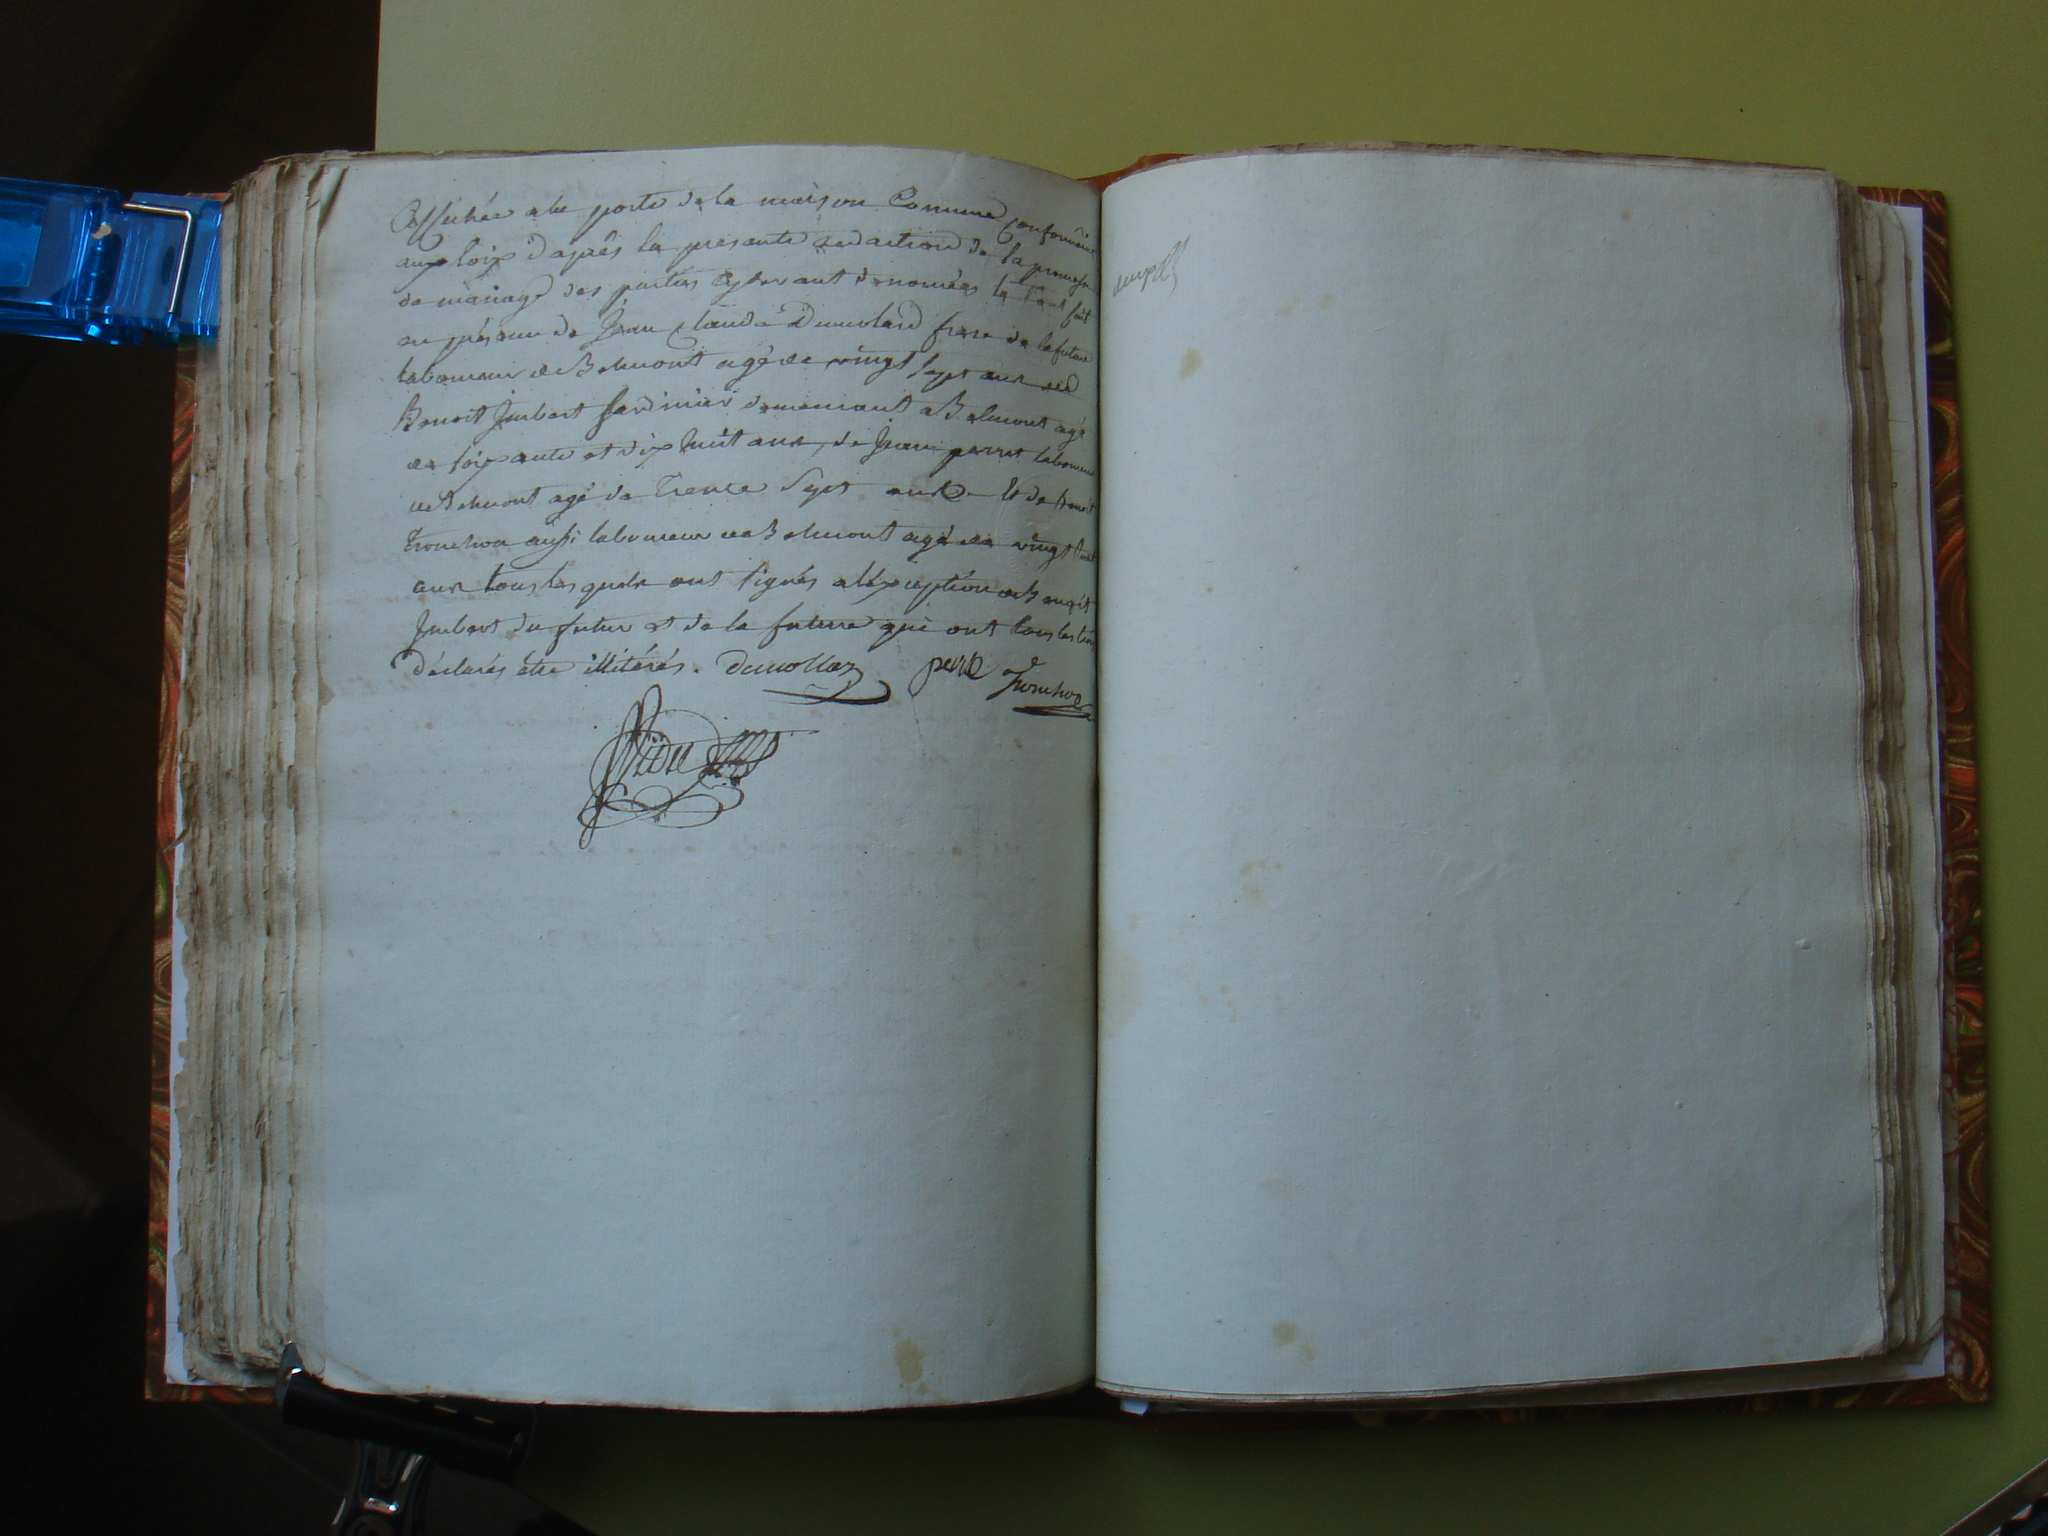 Affichée a la porte de la maison Commune Conformément
aux loix d'après la presente redaction de la promesse
de mariage des parties cy devant denomées le tout fait
en présence de Jean Claude Dumolard frere de la future
laboureur de Belmont agé de vingt sept ans de
Benoit Jmbert Jardinier demeurant a Belmont agé
de soixante et dix huit ans, de Jean perret laboureur
de Belmont agé de Trente Sept ans Et de Benoit
Tronchon aussi laboureur de Belmont agé de vingt huit
ans tous lesquels ont signés a léxception de Benoit
Jmbert du futur et de la future qui ont tous les trois
déclarés être illitérés. Dumollar perret Tronchon